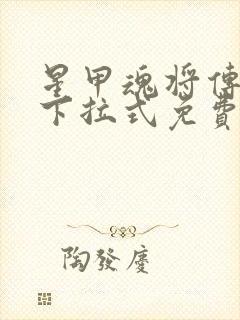 星甲魂将傳
下拉式免費
陶發慶